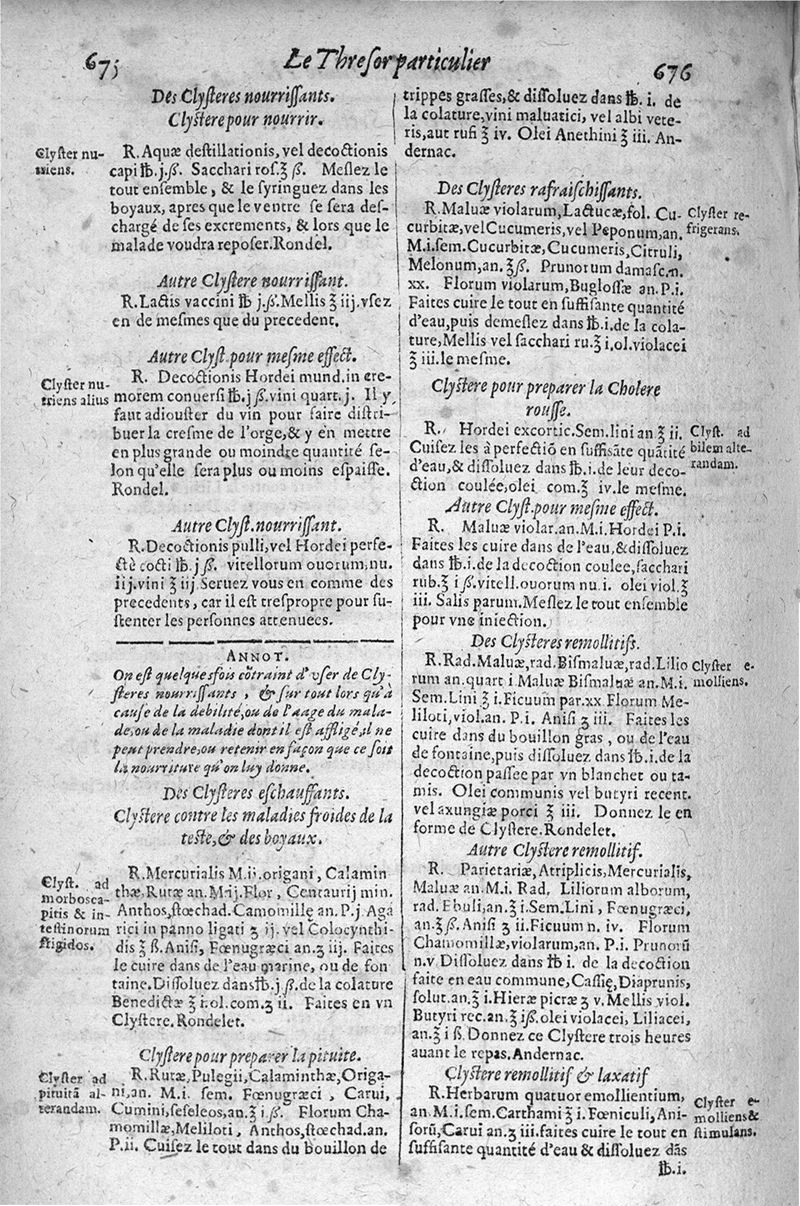 675
Le Thresor particulier
676
Des Clysteres nourrissants.
Clystere pour nourrir.
Clyster nu-
triens.
R. Aquæ destillationis, vel decoctionis
capi ℔.j.ß. Sacchari ros.℥ ß. Meslez le
tout ensemble, & le syringuez dans les
boyaux, apres que le ventre se sera des-
chargé de ses excrements, & lors que le
malade voudra reposer. Rondel.
Autre Clystere nourrissant.
R. Lactis vaccini ℔ j.ß. Mellis ℥ iij. vsez
en de mesmes que du precedent.
Autre Clyst. pour mesme effect.
Clyster nu-
triens alius
R. Decoctionis Hordei mund. in cre-
morem conuersi ℔.j ß. vini quart. j. Il y
faut adiouster du vin pour faire distri-
buer la cresme de l'orge, & y en mettre
en plus grande ou moindre quantité se-
lon qu'elle sera plus ou moins espaisse.
Rondel.
Autre Clyst. nourrissant.
R. Decoctionis pulli, vel Hordei perfe-
ctè cocti ℔.j ß. vitellorum ouorum, nu.
iij. vini ℥ iij Seruez vous en comme des
precedents, car il est trespropre pour su-
stenter les personnes attenuees.
ANNOT.
On est quelquesfois cõtraint d'vser de Cly-
steres nourrissants, & sur tout lors qu'à
cause de la debilité, ou de l'aage du mala-
de, ou de la maladie dont il est affligé, il ne
peut prendre, ou retenir en façon que ce soit
la nourriture qu'on luy donne.
Des Clysteres eschauffants.
Clystere contre les maladies froides de la
teste, & des boyaux.
Clyst. ad
morbos ca-
pitis & in-
testinorum
frigidos.
R. Mercurialis M.ij. origani, Calamin
thæ, Rutæ an. M.ij. Flor, Centaurij min.
Anthos, stœchad. Camomillę an. P.j. Aga
rici in panno ligati ʒ ij. vel Colocynthi-
dis ʒ ß. Anisi, Fœnugræci an.ʒ iij. Faites
le cuire dans de l'eau marine, ou de fon
taine. Dissoluez dans ℔.j.ß. de la colature
Benedictæ ℥ i. ol. com. ʒ ii. Faites en vn
Clystere. Rondelet.
Clystere pour preparer la pituite.
Clyster ad
pituitã al-
terandam.
R. Rutæ, Pulegii, Calaminthæ, Origa-
ni, an. M.i. sem. Fœnugræci, Carui,
Cumini, seseleos, an.℥ i ß. Florum Cha-
momillæ, Meliloti, Anthos, stœchad. an.
P.ii. Cuisez le tout dans du bouillon de
trippes grasses, & dissoluez dans ℔. i. de
la colature, vini maluatici, vel albi vete-
ris, aut rufi ℥ iv. Olei Anethini ℥ iii. An-
dernac.
Des Clysteres rafraischissants.
Clyster re-
frigerans.
R. Maluæ violarum, Lactucæ, fol. Cu-
curbitæ, vel Cucumeris, vel Peponum, an.
M.i. sem. Cucurbitæ, Cucumeris, Citruli,
Melonum, an. ℥ß. Prunorum damasc. n.
xx. Florum violarum, Buglossæ an. P.i.
Faites cuire le tout en suffisante quantité
d'eau, puis demeslez dans ℔.i. de la cola-
ture, Mellis vel sacchari ru.℥ i. ol. violacei
℥ iii. le mesme.
Clystere pour preparer la Cholere
rousse.
Clyst. ad
bilem alte-
randam.
R. Hordei excortic. Sem. lini an ℥ ii.
Cuisez les à perfectiõ en suffisãte quãtité
d'eau, & dissoluez dans ℔.i. de leur deco-
ction coulée, olei com.℥ iv. le mesme.
Autre Clyst. pour mesme effect.
R. Maluæ violar. an. M.i. Hordei P.i.
Faites les cuire dans de l'eau, & dissoluez
dans ℔.i. de la decoction coulee, sacchari
rub.℥ i ß. vitell. ouorum nu. i. olei viol.℥
iii. Salis parum. Meslez le tout ensemble
pour vne iniection.
Des Clysteres remollitifs.
Clyster e-
molliens.
R. Rad. Maluæ, rad. Bismaluæ, rad. Lilio
rum an. quart i. Maluæ Bismaluæ an. M.i.
Sem. Lini ℥ i. Ficuum par. xx. Florum Me-
liloti, viol. an. P.i. Anisi ʒ iii. Faites les
cuire dans du bouillon gras, ou de l'eau
de fontaine, puis dissoluez dans ℔.i. de la
decoction passee par vn blanchet ou ta-
mis. Olei communis vel butyri recent.
vel axungiæ porci ℥ iii. Donnez le en
forme de Clystere. Rondelet.
Autre Clystere remollitif.
R. Parietariæ, Atriplicis, Mercurialis,
Maluæ an. M.i. Rad. Liliorum alborum,
rad. Ebuli, an.℥ i. Sem. Lini, Fœnugræci,
an.℥ ß. Anisi ʒ ii. Ficuum n. iv. Florum
Chamomillæ, violarum, an. P.i. Prunorũ
n. v. Dissoluez dans ℔ i. de la decoction
faite en eau commune, Cassię, Diaprunis,
solut. an.℥ i. Hieræ picræ ʒ v. Mellis viol.
Butyri rec. an.℥ iß. olei violacei, Liliacei,
an.℥ i ß. Donnez ce Clystere trois heures
auant le repas. Andernac.
Clystere remollitif & laxatif
Clyster e-
molliens &
stimulans.
R. Herbarum quatuor emollientium,
an. M.i. sem. Carthami ℥ i. Fœniculi, Ani-
sorũ, Carui an.ʒ iii. faites cuire le tout en
suffisante quantité d'eau & dissoluez dãs
℔.i.